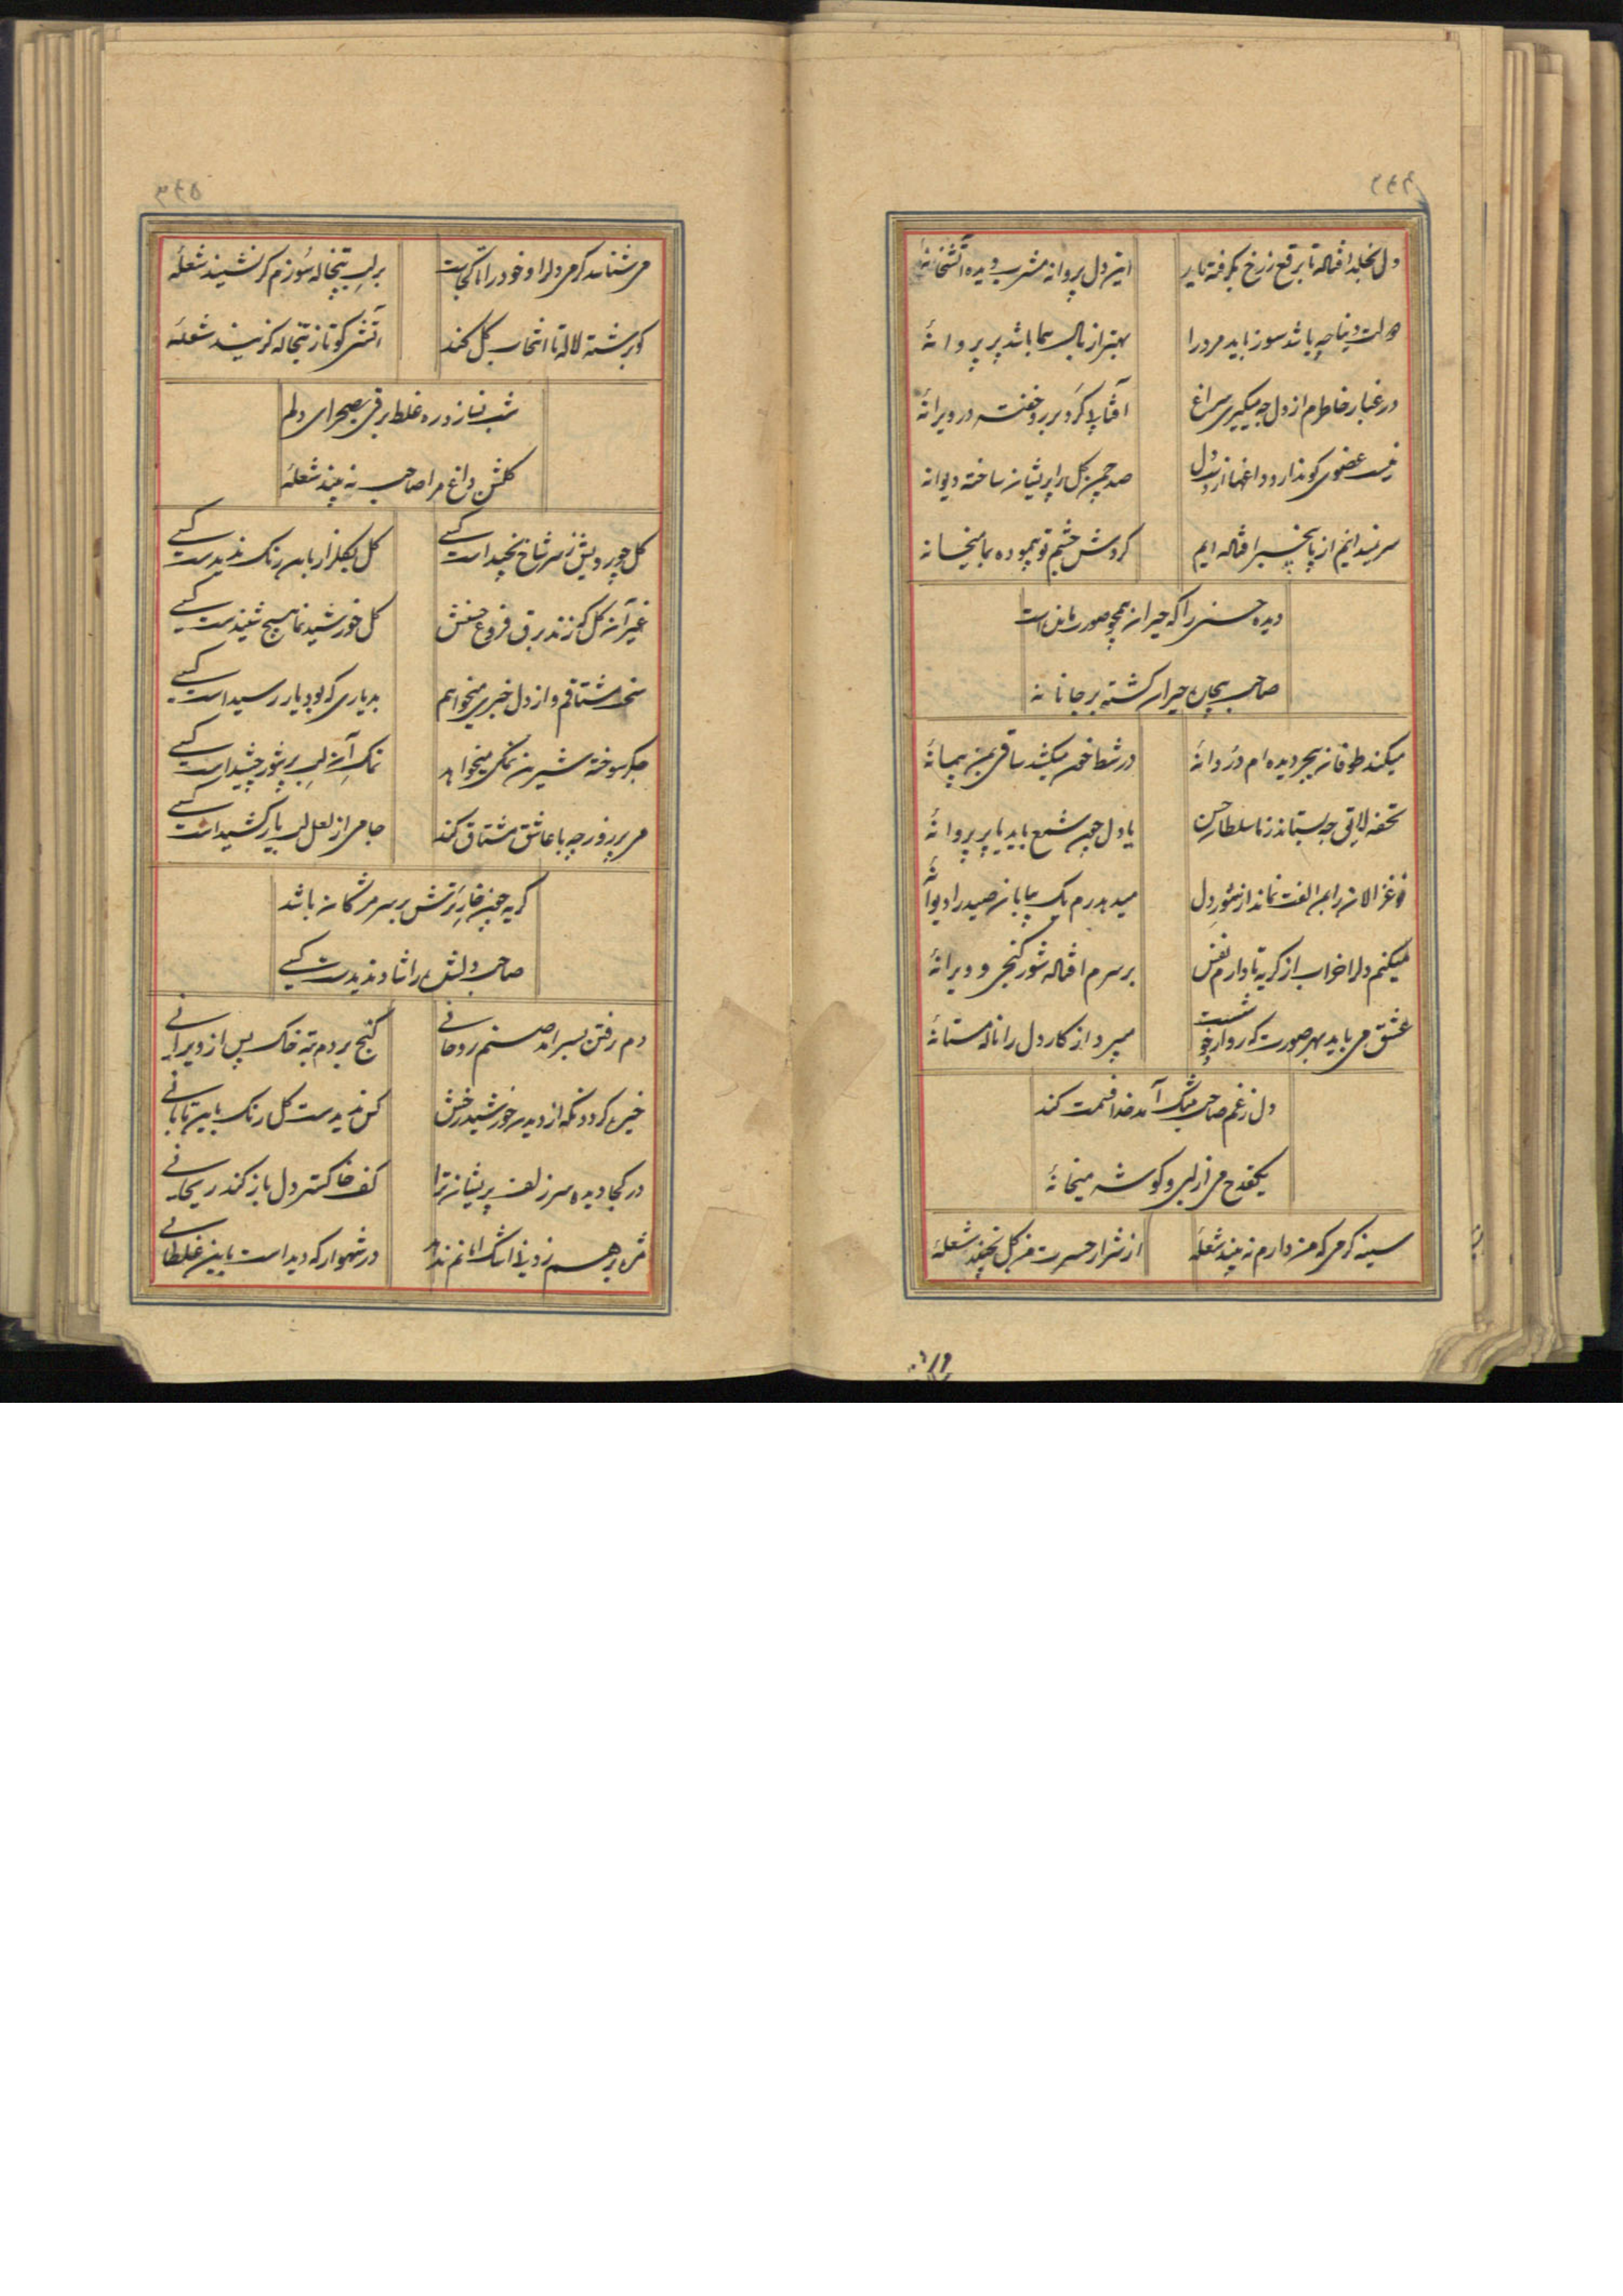 ۳۴۴
دل بخلد افتاله تا برقع ز رخ بگرفته یار این دل پروانه مشرب دیده آتشخانهٔ
دولت دنیا چه باشد سوز باید مرد را بهتر از بال هما باشد پر پروانهٔ
در غبار خاطرم از دل چه میگیری سراغ آفتابلا کرد بر برو خفته در ویرانهٔ
نیست عضوی کو ندارد داغها از دل صد چمن گل را پریشان ساخته دیوانه
سر نمیدانیم از پا بیخبر افتاله ایم گردش چشم تو پیموده بما میخانه
دیده حسنی را که حیران همچو صورت مانده است
صاحب بیچاره حیران گشته بر جانانه
میکند طوفان بحر دیده ام دُردانهٔ در شط خون میکشد ساقی بمن پیمانهٔ
تحفه لایق چه بستاند ز ما سلطان حسن یا دل چون شمع باید یا پر پروانهٔ
غزالان را بمن الفت نماند از شور دل میدهد رم یک بیابان صید را دیوانهٔ
میکنم دل را خراب از گریه تا دارم نفس بر سرم افتاله شور گنجی و ویرانهٔ
عشق می باید بهر صورت که رو دارد خوشست میبرد از کار دل را نالهٔ مستانهٔ
دل ز غم صاحب بتنگ آمد خدا قسمت کند
یکقدح می از لبی و گوشه میخانهٔ
سینه گرمی که من دارم نه بیند شعلهٔ از شرار حسرت من گل نچیند شعلهٔ
۳۴۵
می شناسد گرمی دل را و خود را تا کجاست بر لب تبخاله سوزم گر نشیند شعلهٔ
کو برشته لاله تا انتخاب گل کند آتشی کو تا ز تبخاله گزیند شعلهٔ
شب نیازد ره غلط برقی بصحرای دلم
گلشن داغ مرا صاحب نه بیند شعلهٔ
گل چو رویش ز سر شاخ نچیداست کسی گل بگلزار باین رنگ ندیدست کسی
غیر آن گل که زند برق فروغ حسنش گل خورشید نما هیچ شنیدست کسی
سخت مشتاقم و از دل خبری میخواهم بدیاری که بود یار رسیداست کسی
جگر سوخته شیرین نمکی میخواهد نمک آن لب پر شور چشیداست کسی
می پر زور چه با عاشق مشتاق کند جامی از لعل لب یار کشیداست کسی
گریه چون خار ترش بر سر مژگان باشد
صاحب دلشده را شاد ندیدست کسی
دم رفتن بسر آمد صنم روحانی گنج بردم بته خاک پس از ویرانی
خیره گردد نگه از دیدن خورشید رخش کس ندیدست گل رنگ باین تابانی
در کجا دیده سر زلف پریشان ترا کف خاکستر دل باز کند ریحانی
در شهوار که دیداست باین غلطانی